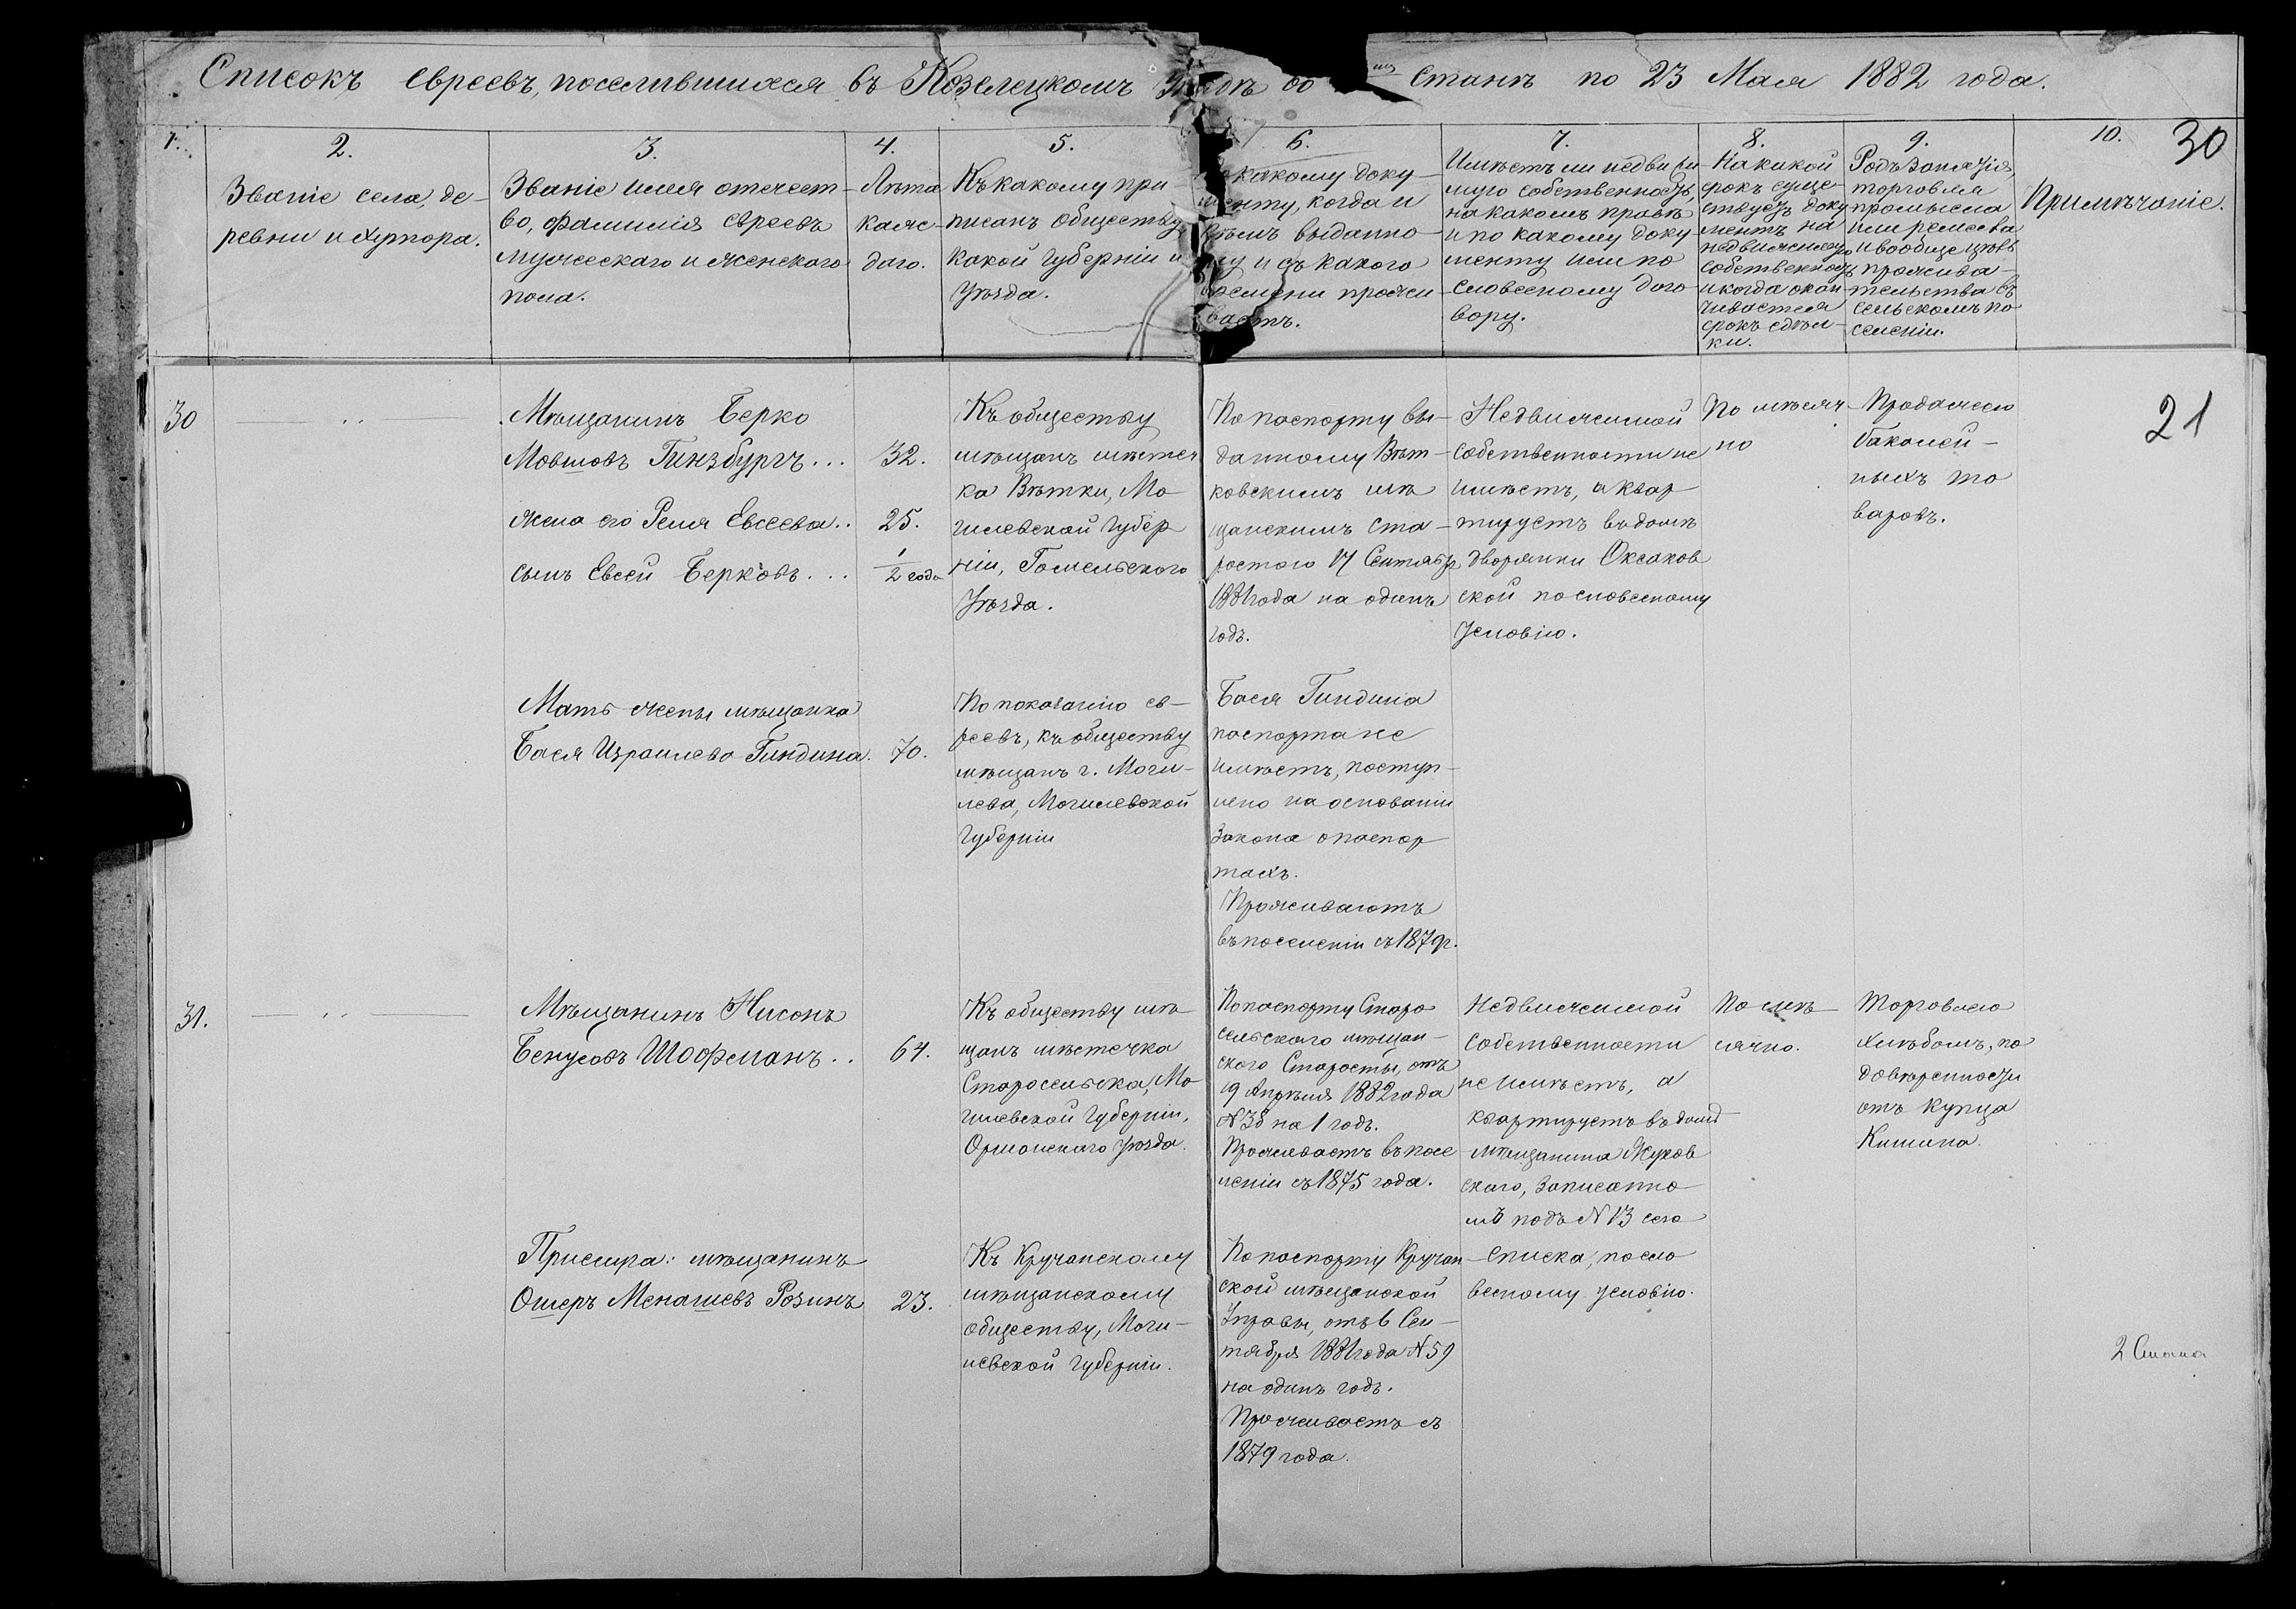 Списокъ евреевъ, поселившихся въ Козелецкомъ Уѣздѣ во станѣ по 23 Мая 1882 года.
30
1.
2.
Званіе села, де-
ревни и хутора.
3.
Званіе имя отечест-
во, фамилія евреевъ
мужескаго и женскаго
пола.
4.
Лѣта
каж-
даго.
5.
Къ какому при-
писанъ обществу
какой губерніи и
уѣзда.
6.
какому доку-
менту, когда и
кѣмъ выданно-
му и съ какого
времени прожи-
ваетъ.
7.
Имѣетъ ли недвижи
мую собственность,
на какомъ правѣ
и по какому доку-
менту или по
словесному дого-
вору.
8.
На какой
срокъ суще-
ствуетъ доку-
ментъ на
недвижимую
собственность
и когда окан-
чивается
срокъ сдѣл-
ки.
9.
Родъ занятія,
торговля
промысла
или ремесла
и вообще цѣль
прожива-
тельства въ
сельскомъ по-
селеніи.
10.
Примѣчаніе.
21
30
Мѣщанинъ Берко
Мовшовъ Гинзбургъ... 32.
жена его Реля Евсеева.. 25.
сынъ Евсей Берковъ... 1/2 года
Къ обществу
мѣщанъ мѣстеч
ка Вѣтки, Мо
гилевской губер
ніи, Гомельского
Уѣзда.
По паспорту вы-
данному Вѣт-
ковскимъ мѣ
щанскимъ ста-
ростого 17 Сентябр
1881 года на одинъ
годъ.
Недвижимой
собственности не
имѣетъ, а квар
тируетъ въ домѣ
дворянки Оксаков
ской по словесному
условію.
По мѣсяч-
но
Продажею
бакалей-
ныхъ то
варовъ.
Мать жены мѣщанка
Бася Израилева Гиндина. 70.
По показанію ев-
реевъ, къ обществу
мѣщанъ г. Моги-
лева, Могилевской
губерніи
Бася Гиндина
паспорта не
имѣетъ, поступ-
лено на основаніи
закона о паспор
тахъ.
Проживаютъ
въ поселеніи съ 1879 г.
31.
Мѣщанинъ Нисонъ
Бенусовъ Шофманъ.. 64.
Къ обществу мѣ
щанъ мѣстечка
Старосельска, Мо
гилевской губерніи,
Оршанскаго уѣзда.
По паспорту Старо
сельского мѣщан-
ского Старосты, отъ
19 Апрѣля 1882 года
N 38 на 1 годъ.
Проживаетъ въ посе
леніи съ 1875 года.
Недвижимой
собственности
не имѣетъ, а
квартируетъ въ домѣ
мѣщанина Жуков
ского, записанно
мъ подъ N 13 сего
списка, по сло
весному условію.
По мѣ-
сячно.
Торговлею
хлѣбомъ, по
довѣренности
отъ купца
Кишина.
При немъ: мѣщанинъ
Ошеръ Менашевъ Розинъ 23.
Къ Кручанскому
мѣщанскому
обществу, Моги-
левской губерніи.
По паспорту Кручан
ской мѣщанской
Управы, отъ 6 Сен-
тября 1881 года N 59
на одинъ годъ.
Проживаетъ съ
1879 года.
2 Стана